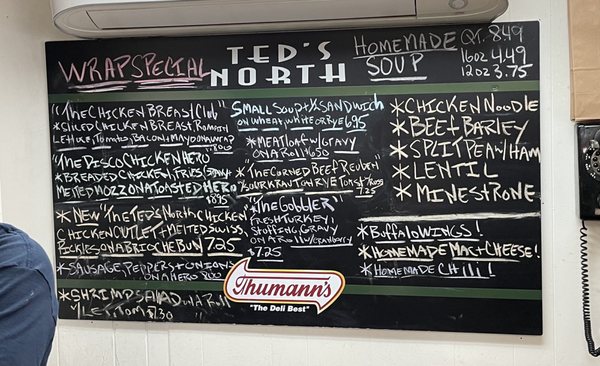 WRAP SPECIAL
"THE CHICKEN BREAST CLUB"
*SLICED CHICKEN BREAST, ROMAIN
LETTUCE, TOMATO, BACON & MAYO ON A WRAP
"THE DISCO CHICKEN HERO
*BREADED CHICKEN, FRIES, GRAVY
MELTED MOZZ ON A TOASTED HERO
8.95
*NEW "THE TEDS NORTH CHICKEN
CHICKEN CUTLET + MELTED SWISS,
PICKLES ON A BRIOCHE BUN 7.25
*SAUSAGE, PEPPERS + ONIONS
ON A HERO
*SHRIMP SALAD ON A ROLL
W/LET, TOM 7.30
TED'S
NORTH
SMALL SOUP + ½ SANDWICH
ON WHEAT, WHITE OR RYE 6.95
*MEATLOAF W/GRAVY
ON A ROLL 6.50
"THE CORNED BEEF REUBEN"
*SOURKRAUT ON RYE TOAST
7.25
"THE GOBBLER"
FRESH TURKEY,
STUFFING, GRAVY
ON A ROLL W/CRANBERRY
$7.25
Thumann's
"The Deli Best"
HOMEMADE
SOUP
QT. 8.49
16oz 4.49
12oz 3.75
*CHICKEN NOODLE
*BEEF BARLEY
*SPLIT PEA W/HAM
*LENTIL
*MINESTRONE
*BUFFALO WINGS!
*HOMEMADE MAC + CHEESE!
*HOMEMADE CHILI!